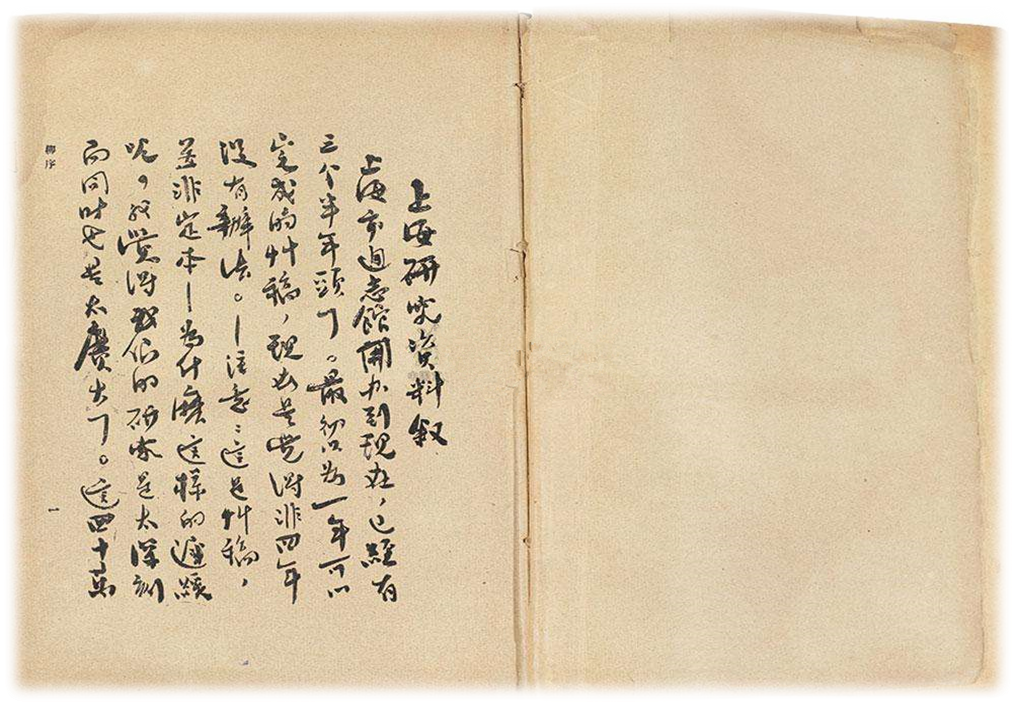 上海研究資料叙
上海市通志館開办到現在，已經有
三个半年頭了。最初以為一年可以
完成的艸稿，現在是覺得非四年
沒有辦法。—注意：這是艸稿，
並非定本—為什麽這樣的遲緩
呢。我覺得我們的研究是太深刻
而同时也是太廣大了。這四十萬
柳序
一